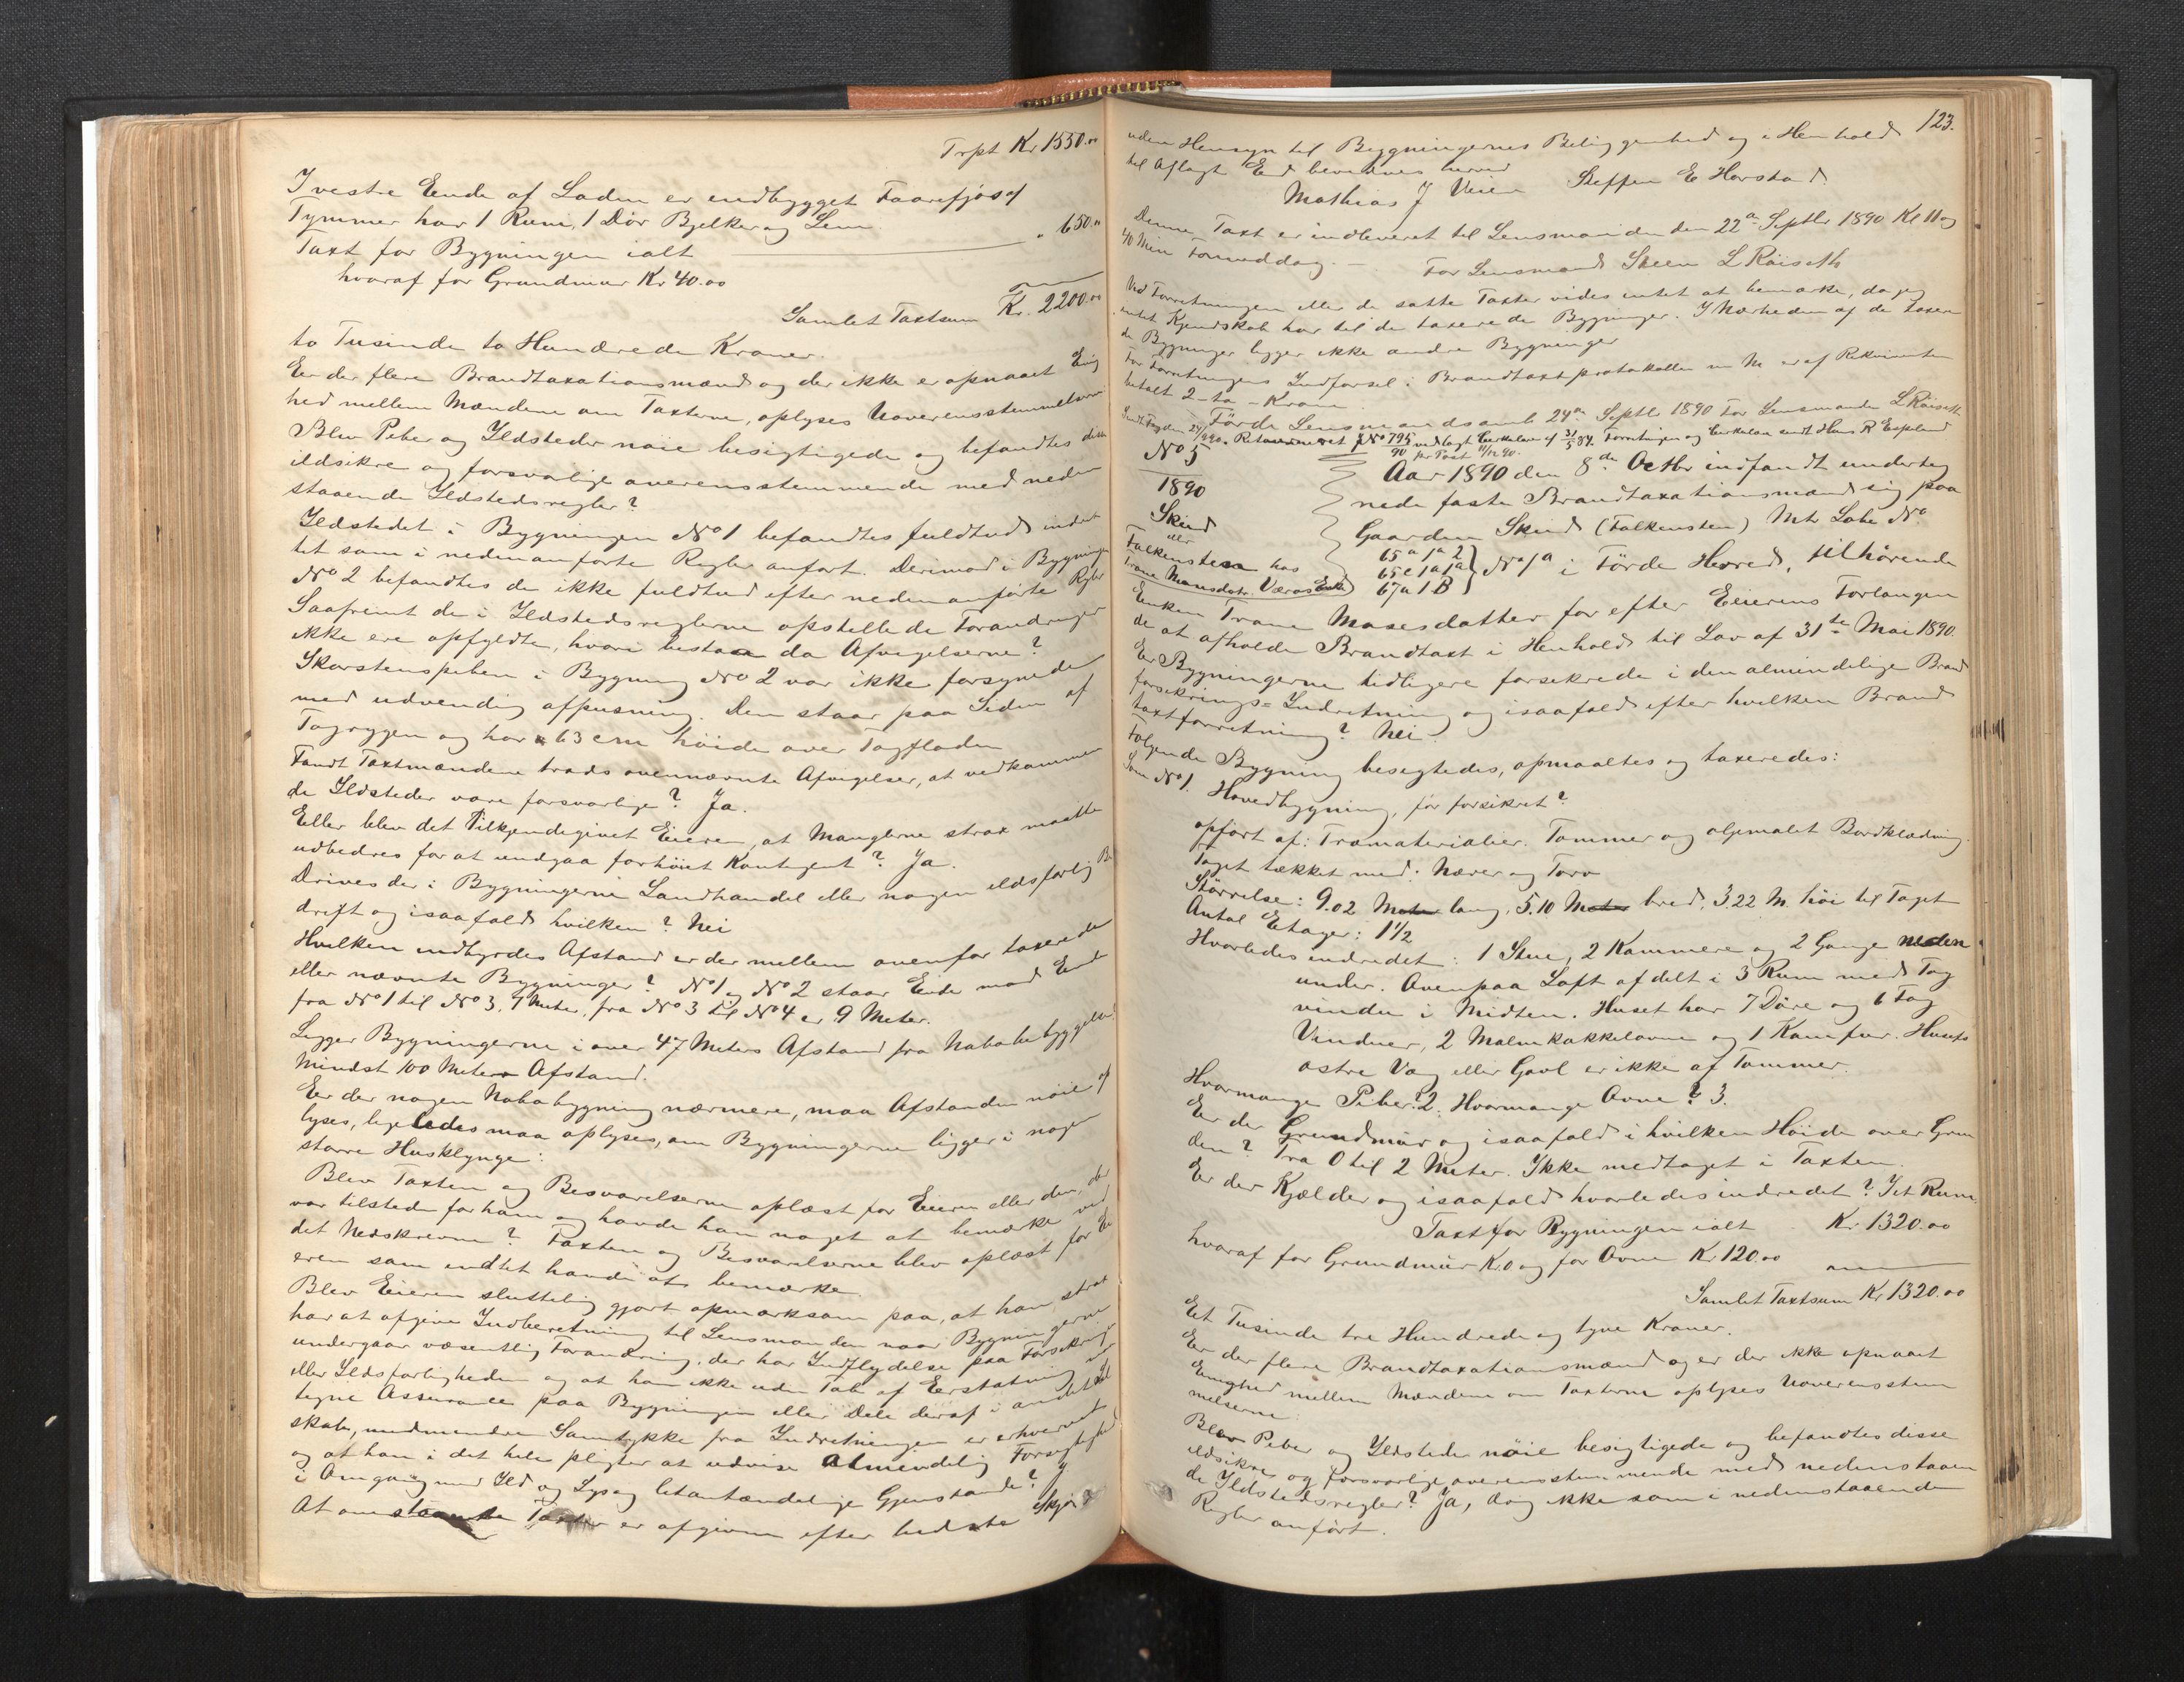 Trpt Kr 1550.00
I vestre Ende af Laden er indbygget Faarefjøs af
Tymmer har 1 Rum, 1 Dør Bjelker og Lem
Taxt for Bygningen ialt " 650.00
hvoraf for Grundmur Kr 40.00
Samlet Taxtsum Kr. 2200.00
to Tusinde to Hundrede Kroner.
Er der flere Brandtaxationsmænd og der ikke er opnaaet Enig
hed mellem Mændene om Taxterne, oplyses Uoverensstemmelserne
Blev Peber og Ildsteder nøie besigtigede og befandtes disse
ildsikre og forsvarlige overensstemmende med neden
staaende Ildstedsregler?
Ildstedet i Bygningen No 1 befandtes fuldtud indret
tet som i nedenanførte Regler anført. Derimod i Bygningen
No 2 befandtes de ikke fuldtud efter nedenanførte Regler
Saafremt de i Ildstedsreglerne opstillede Forandringer
ikke ere opfyldte, hvori bestaaa da Afvigelserne?
Skorstenspiben i Bygning No 2 var ikke forsynede
med udvendig afpusning. Den staar paa Siden af
Tagryggen og har 63 cm høide over Tagfladen
Fandt Taxtmændene trods ovennævnte Afvigelser, at vedkommen
de Ildsteder vare forsvarlige? Ja.
Eller blev det Tilkjendegivet Eieren, at Manglerne strax maatte
udbedres for at undgaa forhøiet Kontingent? Ja.
Drives der i Bygningerne Landhandel eller nogen ildsfarlig Be
drift og isaafald hvilken? Nei
Hvilken indbyrdes Afstand er der mellem ovenfor taxerede
eller nævnte Bygninger? No 1 og No 2 staar Ende mod Ende
fra No 1 til No 3, 9 Meter, fra No 3 til No 4 er 9 Meter.
Ligger Bygningerne i over 47 Meters Afstand fra Nabobebyggelse?
Mindst 100 Meters Afstand.
Er der nogen Nabobygning nærmere, maa Afstanden nøie op
lyses, ligeledes maa oplyses, om Bygningerne ligger i nogen
større Husklynge:
Blev Taxten og Besvarelserne oplæst for Eieren eller den, der
var tilstede for ham og havde han noget at bemærke ved
det Nedskrevne? Taxten og Besvarelserne blev oplæst for Ei
eren som indtet havde at bemærke
Blev Eieren sluttelig gjort opmærksom paa, at han strax
har at afgive Indberetning til Lensmanden naar Bygningerne
undergaar væsentlig Forandring, der har Indflydelse paa Forsikring
eller Ildsfarligheden og at han ikke uden Tab af Erstatning
tegne Assurance paa Bygningen eller Dele deraf i andet Sel
skab, medmindre Samtykke fra Indretningen er erhvervet
og at han i det hele pligter at udvise Almindelig Forsigtighed
i Omgang med Ild og Lys og letantændelige Gjenstande? J
At omstaaende Taxter er afgivne efter bedste Skjøn
123.
uden Hensyn til Bygningernes Beliggenhed og i Henhold
til Aflagt Ed bevidnes herved
Mathias J Veien Steffen E Horstad
Denne Taxt er indleveret til Lensmanden den 22de Septbr 1890 Kl 11 og
40 Min Formeddag. – For Lensmand Steen L Røiseth
Ved Forretningen eller de satte Taxter vides intet at bemærke, da jeg
intet Kjendskab har til de taxerede Bygninger. I Nærheden af de taxere
de Bygninger ligger ikke andre Bygninger
For Forretningens Indførsel i Brandtaxtprotokollen m M er af Rekvirenten
betalt 2 – to – Kroner
Førde Lensmandsamt 24de Septbr 1890 For Lensmanden L Røiseth
Returneret JNo 795/90 vedlagt Cirkulære af 31/5 89. Forretningen og Cirkulæren sendt Hans R Espeland
pr Post 11/12 90.
No 5
1890
Skind
eller
Falkensten hos
Trane Monsdatr Værøs Enke
Aar 1890 den 8de Octbr indfandt underteg
nede faste Brandtaxationsmænd sig paa
Gaarden Skind (Falkensten) Mtr Løbe No
65a 1a 2
65c 1a 1a
67a 1 B
No 1a i Førde Herred, tilhørende
Enken Trane Monsdatter for efter Eierens Forlangen
de at afholde Brandtaxt i Henhold til Lov af 31te Mai 1890.
Er Bygningerne tidligere forsikrede i den almindelige Brand
forsikrings-Indretning og isaafald efter hvilken Brand
taxtforretning? Nei.
Følgende Bygning besigtedes, opmaaltes og taxeredes:
Som No 1. Hovedbygning, før forsikret?
opført af: Træmaterialier. Tømmer og oljemalet Bordklædning.
Taget tækket med: Næver og Torv
Størrelse: 9.02 Meter lang, 5.10 Meter bred, 3.22 M. høi til Taget
Antal Etager: 1½
Hvorledes indredet: 1 Stue, 2 Kammere og 2 Gange neden
under. Ovenpaa Loft afdelt i 3 Rum med Tag
vindu i Midten. Huset har 7 Døre og 6 Fag
Vinduer, 2 Malmkakkelovne og 1 Komfur. Husets
østre Væg eller Gavl er ikke af Tømmer.
Hvormange Piber? 2. Hvormange Ovne? 3.
Er der Grundmur og isaafald i hvilken Høide over Grun
den? Fra 0 til 2 Meter. Ikke medtaget i Taxten.
Er der Kjælder og isaafald hvorledes indredet? I et Rum.
Taxt for Bygningen ialt Kr. 1320.00
hvoraf for Grundmur Kr. 0 og for Ovne Kr 120.00
Samlet Taxtsum Kr 1320.00
Et Tusinde tre Hundrede og tyve Kroner.
Er der flere Brandtaxationsmænd og er der ikke opnaaet
Enighed mellem Mændene om Taxterne oplyses Uoverensstem
melserne
Blev Peber og Ildsteder nøie besigtigede og befandtes disse
ildsikre og forsvarlige overensstemmende med nedenstaaen
de Ildstedsregler? Ja, dog ikke som i nedenstaaende
Regler anført.